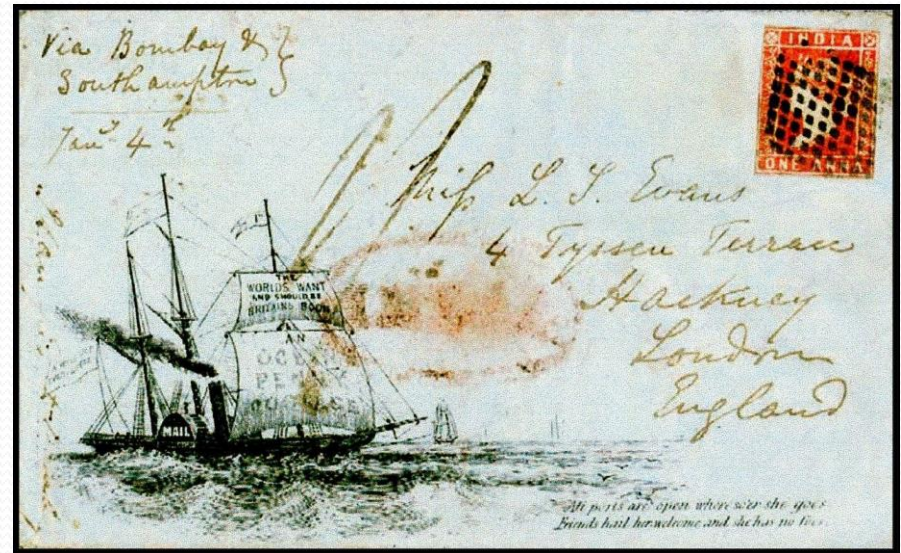 Via Bombay &
Southampton
Jany 4th
INDIA
ONE ANNA
Miss L. S. Evans
4 Tyssen Terrace
Hackney
London
England
THE
WORLDS WANT
AND SHOULD BE
BRITAINS BOON
AN
OCEAN
PENNY
POSTAGE
MAIL
All ports are open where'er she goes
Friends hail her welcome and she has no foes.